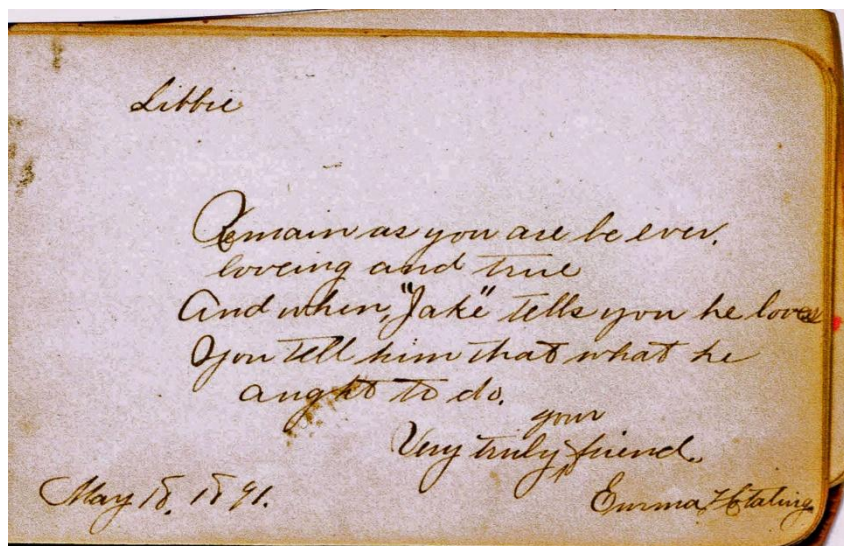 Libbie
Remain as you are be ever.
loveing and true
And when, "Jake" tells you he loves
You tell him that what he
aught to do.
your
Very truly ^ friend.
May 18. 1891.
Emma Hotaling